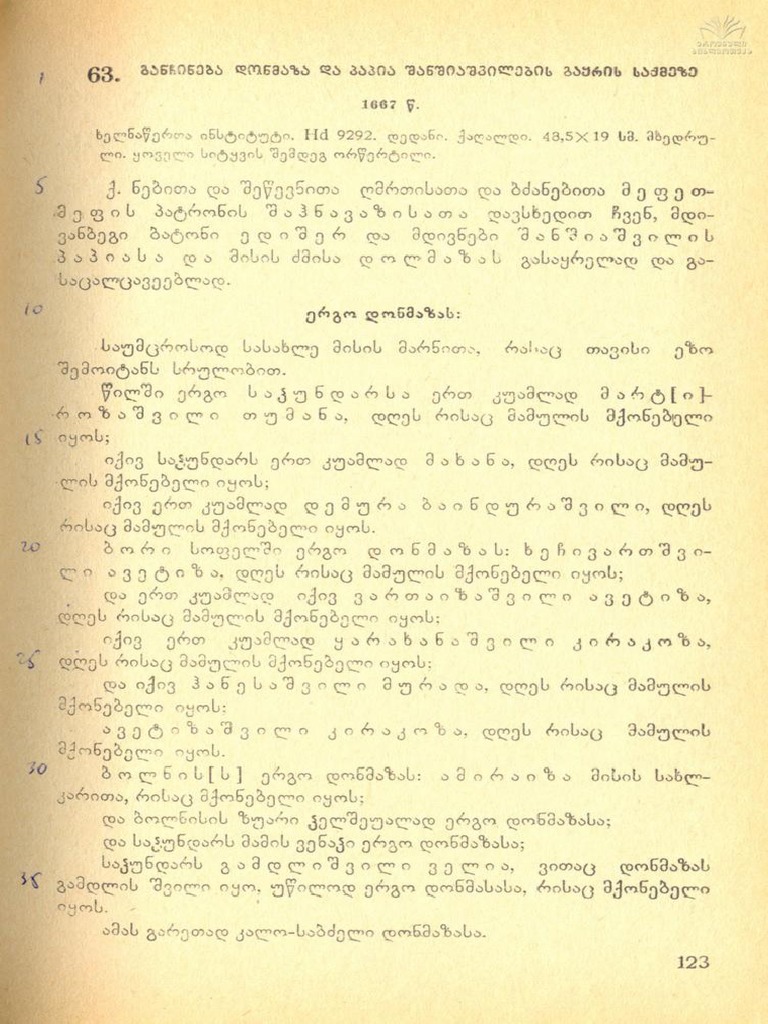 ეროვნული
ბიბლიოთეკა
1 63. განჩინება დონმაზა და პაპია შანშიაშვილების გაყრის საქმეზე
1667 წ.
ხელნაწერთა ინსტიტუტი. Hd 9292. დედანი. ქაღალდი. 43,5×19 სმ. მხედრუ-
ლი. ყოველი სიტყვის შემდეგ ორწერტილი.
5 ქ. ნებითა და შეწევნითა ღმრთისათა და ბძანებითა მეფეთ-
მეფის პატრონის შაჰნავაზისათა დავსხედით ჩვენ, მდი-
ვანბეგი ბატონი ედიშერ და მდივნები შანშიაშვილის
პაპიასა და მისის ძმისა დოლმაზას გასაყრელად და გა-
საცალცავეებლად.
10 ერგო დონმაზას:
საუმცროსოდ სასახლე მისის მარნითა, რასაც თავისი ეზო
შემოიტანს სრულობით.
წილში ერგო საჴუნდარსა ერთ კუამლად მარტ[ი]-
როზაშვილი თუმანა, დღეს რისაც მამულის მქონებელი
15 იყოს;
იქივ საჴუნდარს ერთ კუამლად მახანა, დღეს რისაც მამუ-
ლის მქონებელი იყოს;
იქივ ერთ კუამლად დემურა ბაინდურაშვილი, დღეს
რისაც მამულის მქონებელი იყოს.
20 ბორი სოფელში ერგო დონმაზას: ხეჩივართშვი-
ლი ავეტიზა, დღეს რისაც მამულის მქონებელი იყოს;
და ერთ კუამლად იქივ ვართაიზაშვილი ავეტიზა,
დღეს რისაც მამულის მქონებელი იყოს;
იქივ ერთ კუამლად ყარახანაშვილი კირაკოზა,
25 დღეს რისაც მამულის მქონებელი იყოს;
და იქივ ჰანესაშვილი მურადა, დღეს რისაც მამულის
მქონებელი იყოს;
ავეტიზაშვილი კირაკოზა, დღეს რისაც მამულის
მქონებელი იყოს.
30 ბოლნის[ს] ერგო დონმაზას: ამირაიზა მისის სახლ-
კარითა, რისაც მქონებელი იყოს;
და ბოლნისის ზუარი ჴელშეუალად ერგო დონმაზასა;
და საჴუნდარს მამის ვენაჴი ერგო დონმაზასა;
საჴუნდარს გამდლიშვილი ველია, ვითაც დონმაზას
35 გამდლის შვილი იყო, უწილოდ ერგო დონმასასა, რისაც მქონებელი
იყოს.
ამას გარეთად კალო-საბძელი დონმაზასა.
123